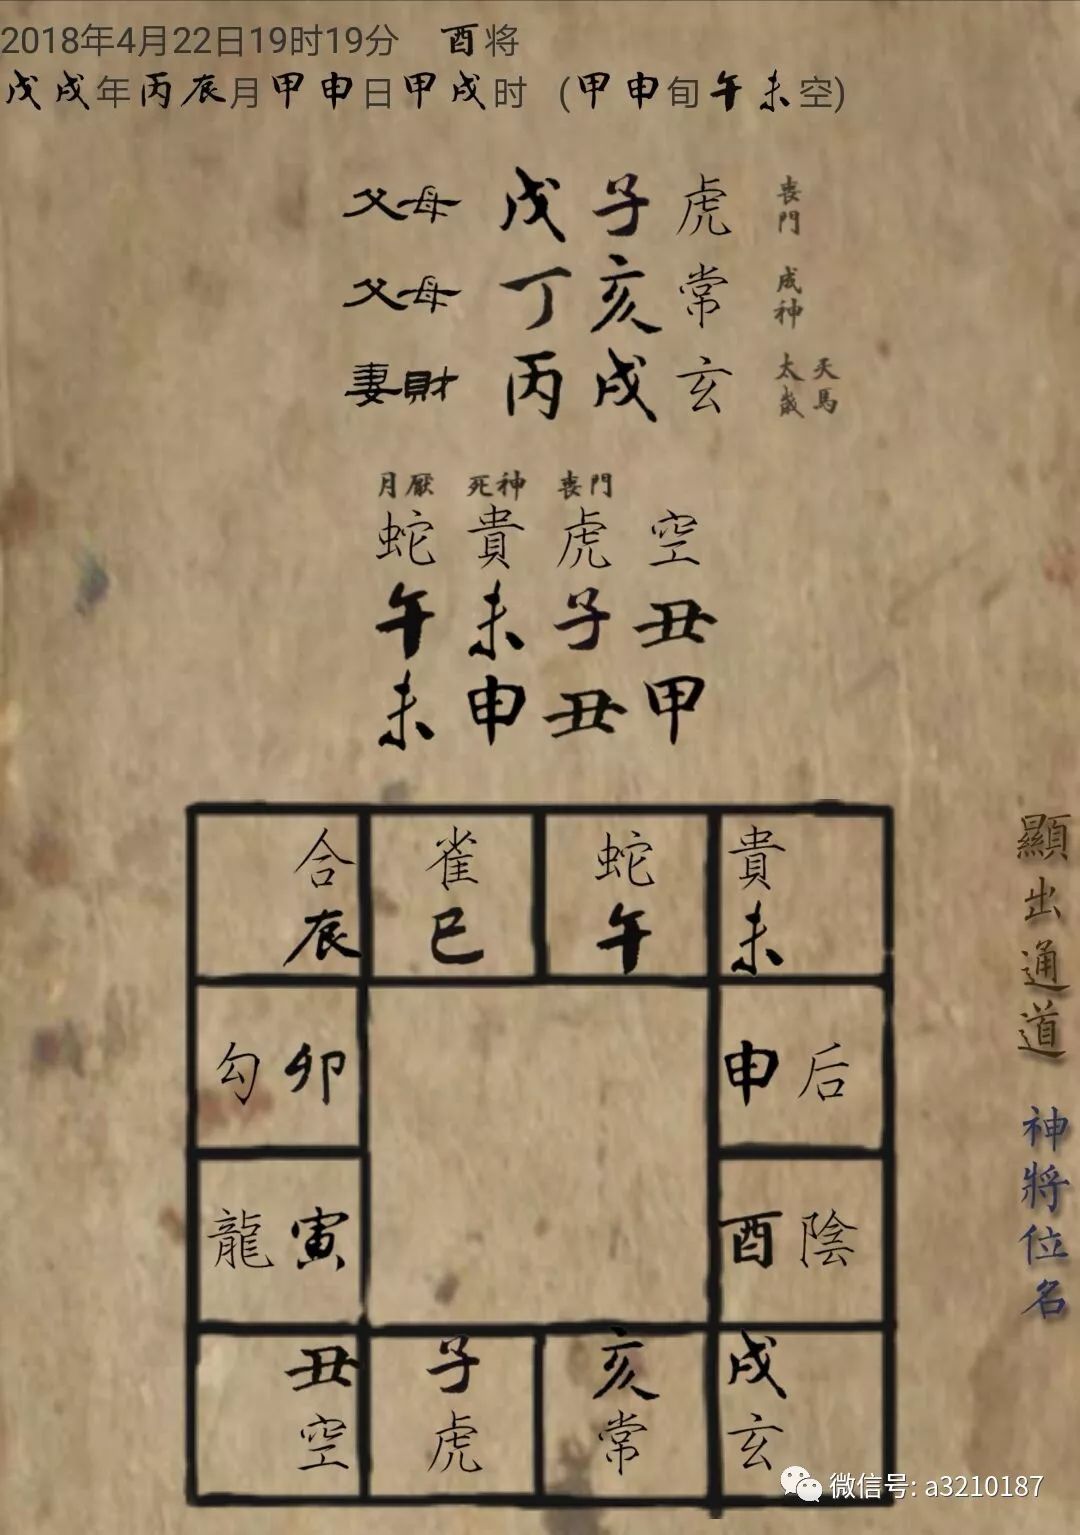 2018年4月22日19时19分 酉将
戊戌年丙辰月甲申日甲戌时 (甲申旬午未空)
父母 戊子虎 喪門
父母 丁亥常 成神
妻財 丙戌玄 太歲 天馬
月厭 死神 喪門
蛇 貴 虎 空
午 未 子 丑
未 申 丑 甲
合 雀 蛇 貴
辰 巳 午 未
勾 卯 申 后
龍 寅 酉 陰
丑 子 亥 戌
空 虎 常 玄
顯出通道 神將位名
微信号: a3210187